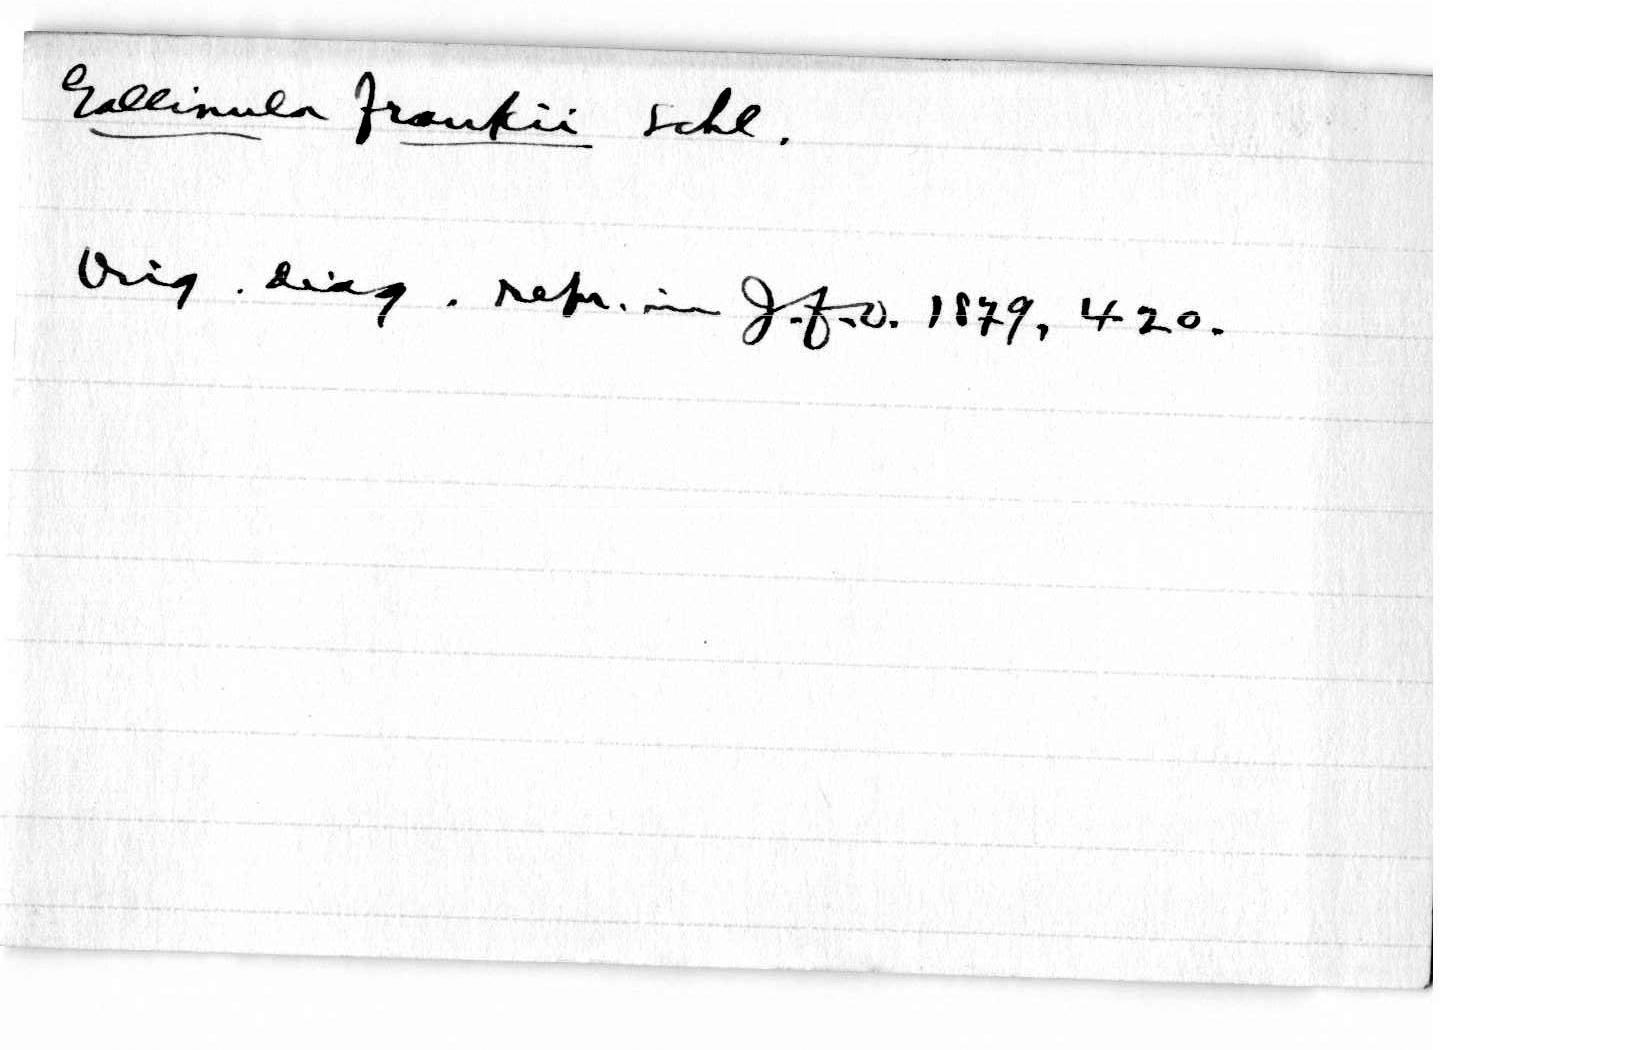 Gallinula frankii Schl.
Orig. diag. repr. in J.f.O. 1879, 420.